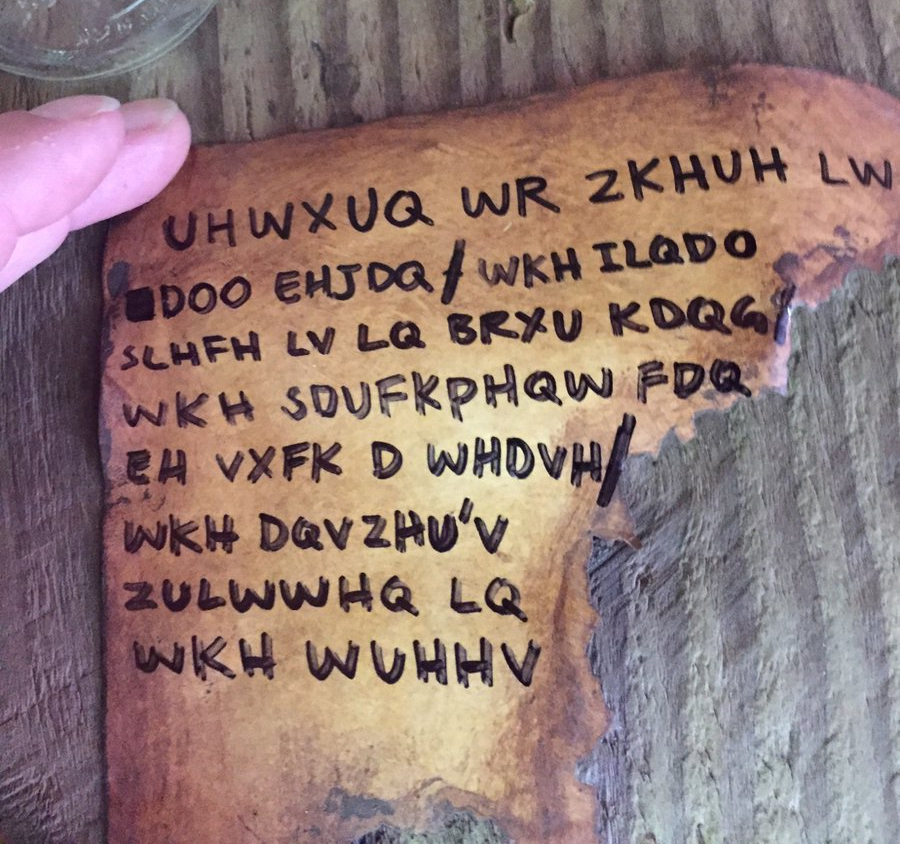 UHWXUQ WR ZKHUH LW
DOO EHJDQ/WKH ILQDO
SLHFH LV LQ BRXU KDQG/
WKH SDUFKPHQW FDQ
EH VXFK D WHDVH/
WKH DQVZHU'V
ZULWWHQ LQ
WKH WUHHV